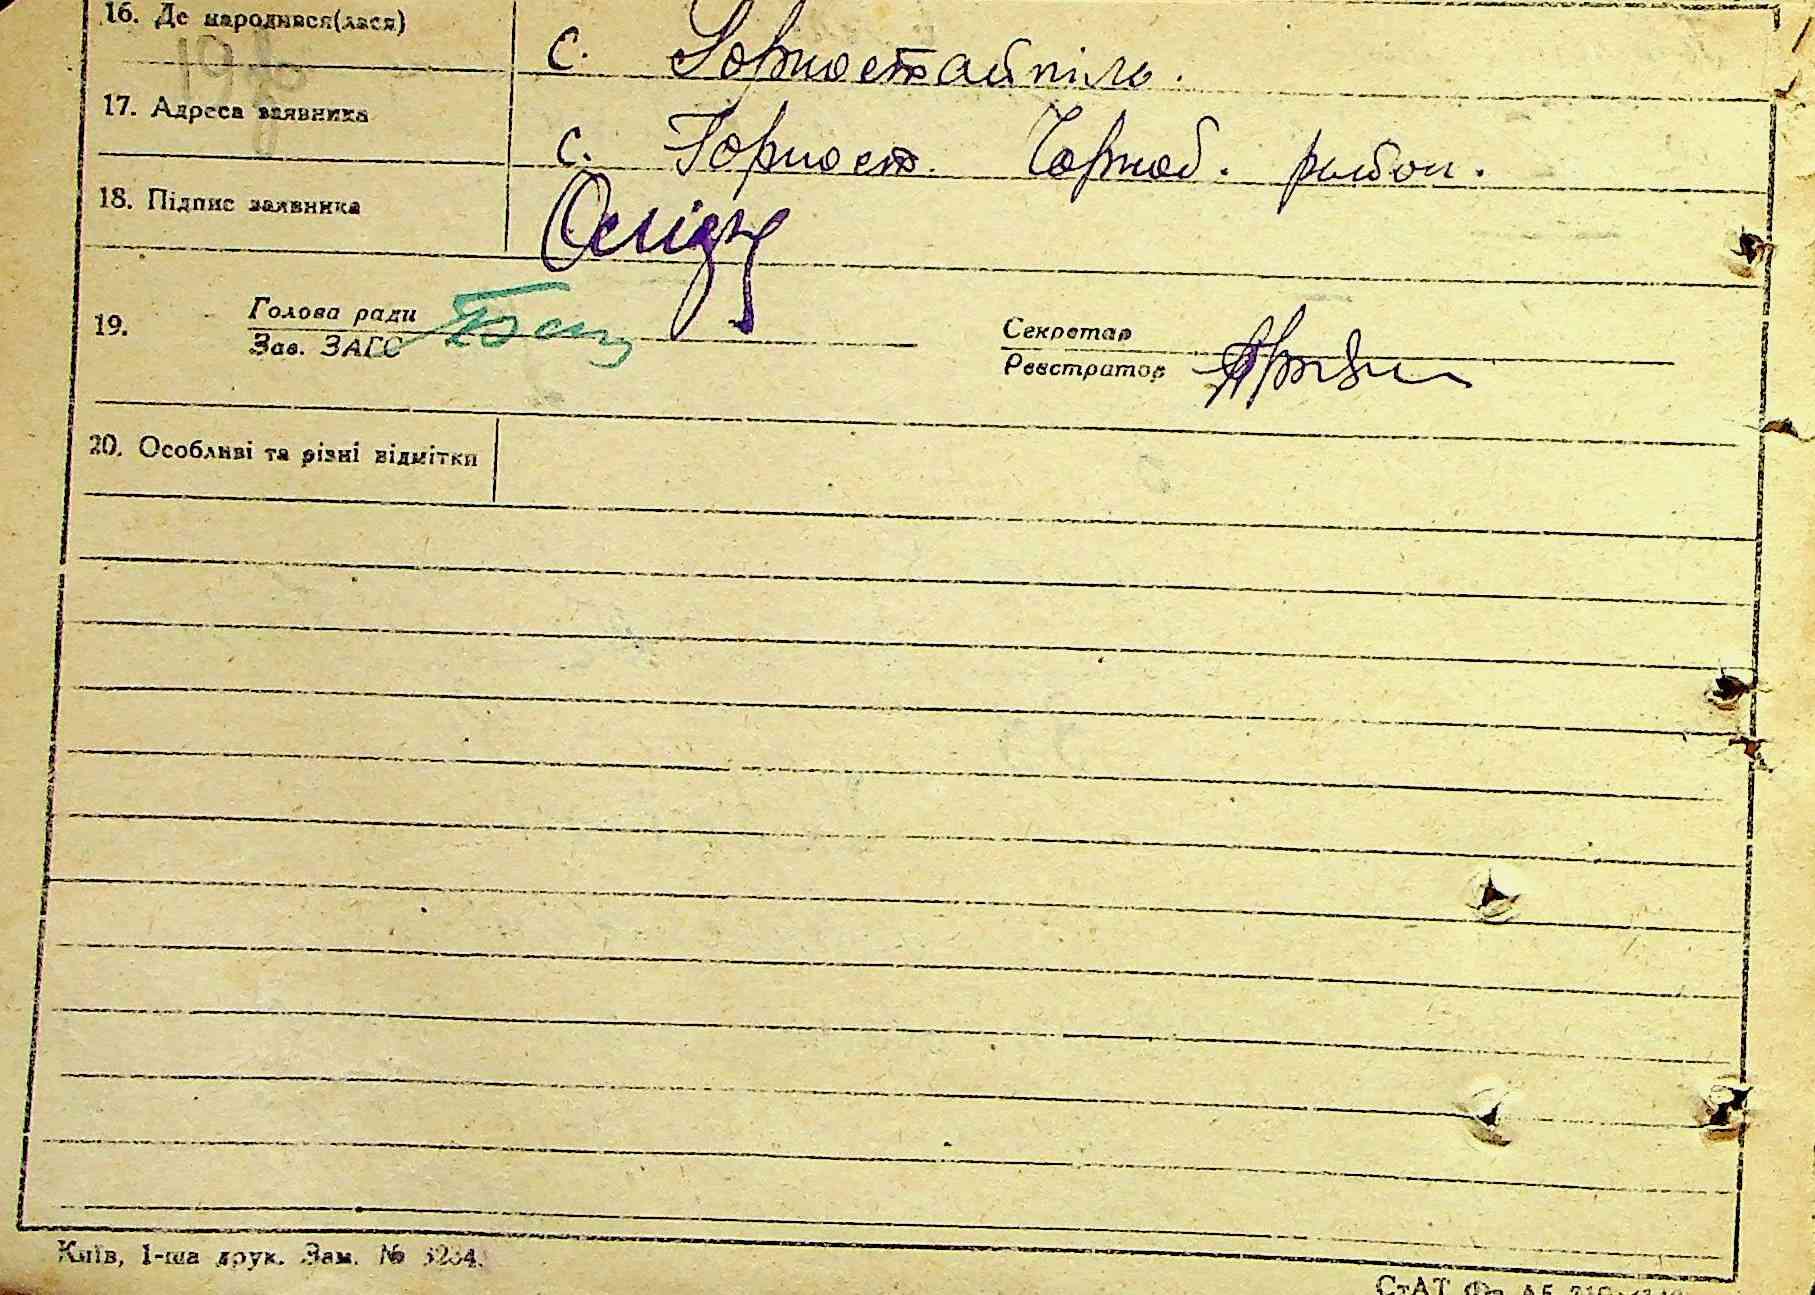 16. Де народився(лася) с. Горностайпіль.
17. Адреса заявника с. Горност. Чорноб. район.
18. Підпис заявника
19. Голова ради Секретар
Зав. ЗАГС Реєстратор
20. Особливі та різні відмітки
Київ, 1-ша друк. Зам. №
СтАТ